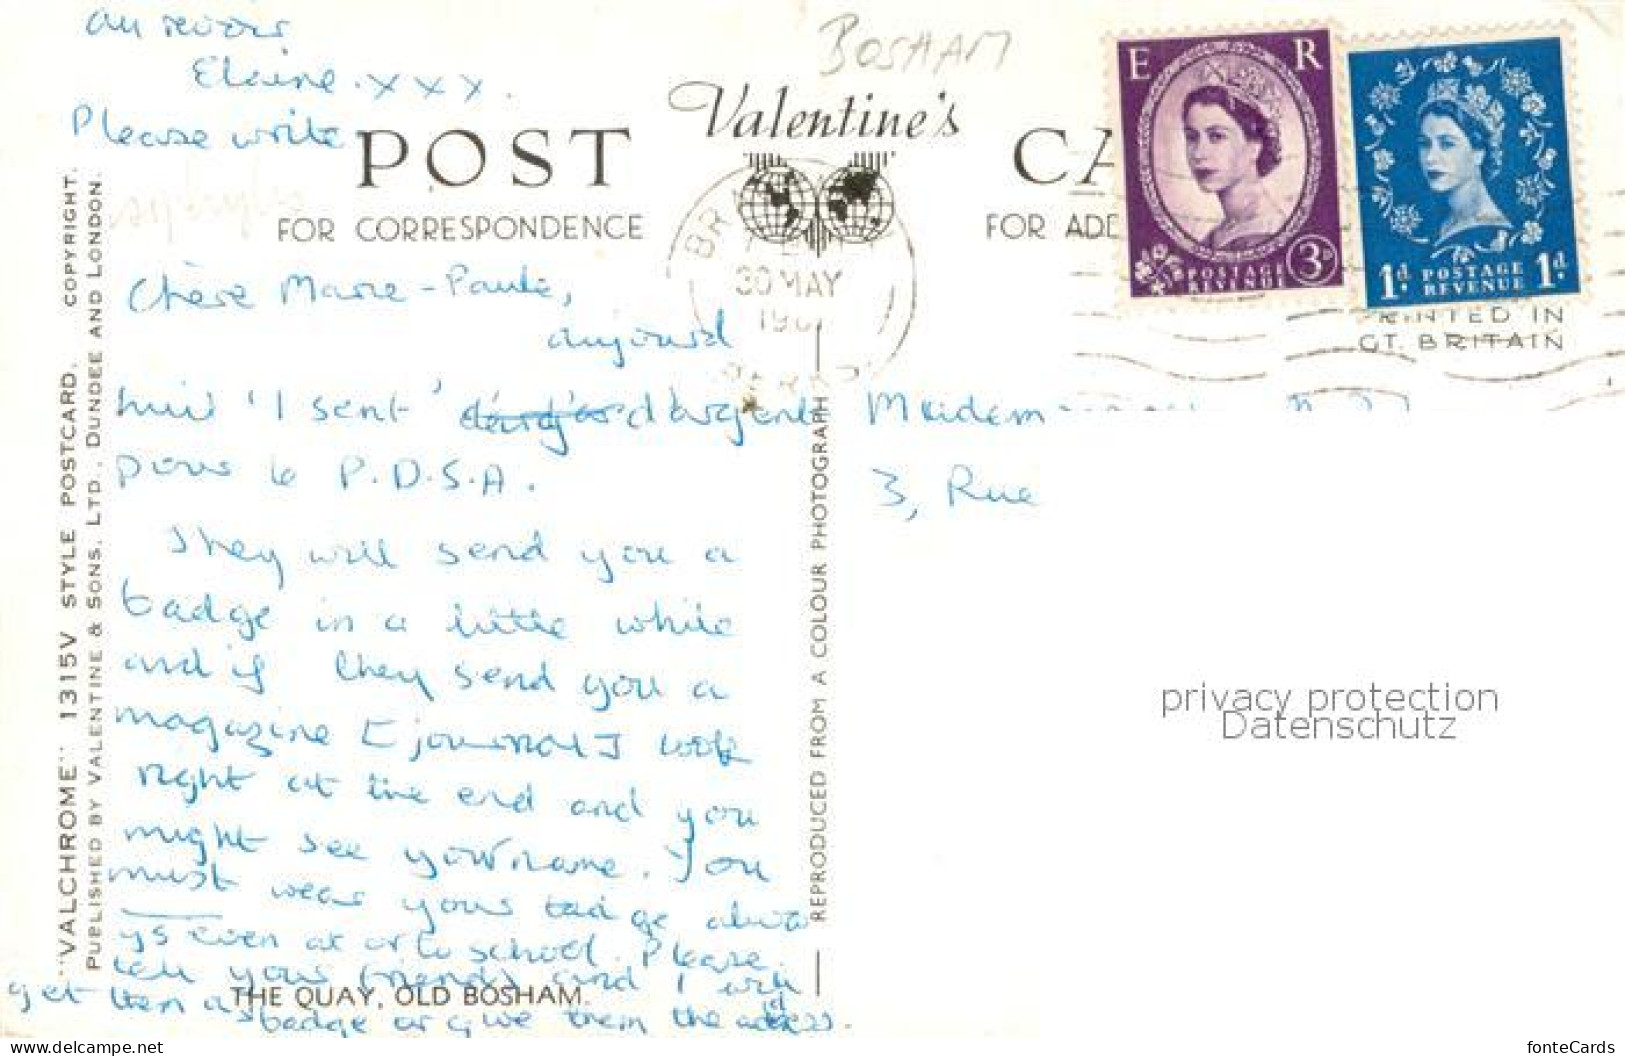 au revoir
Elaine.xxx.
Please write
BOSHAM
Valentine's
POST CA
FOR CORRESPONDENCE
FOR ADD
E R
POSTAGE
REVENUE
3D
1d. POSTAGE 1d.
REVENUE
PRINTED IN
GT. BRITAIN
30 MAY
"VALCHROME" 1315V STYLE POSTCARD. COPYRIGHT.
PUBLISHED BY VALENTINE & SONS, LTD., DUNDEE AND LONDON.
Chère Marie-Paule,
aujourd
hui 'I sent' d'argent
pour le P.D.S.A.
They will send you a
badge in a little while
and if they send you a
magazine [journal] look
right at the end and you
might see your name. You
must wear your badge alwa
ys even at or to school. Please
tell your friends and I will
get them a badge or give them the address.
THE QUAY, OLD BOSHAM.
REPRODUCED FROM A COLOUR PHOTOGRAPH
3, Rue
privacy protection
Datenschutz
https://www.delcampe.net
fonteCards